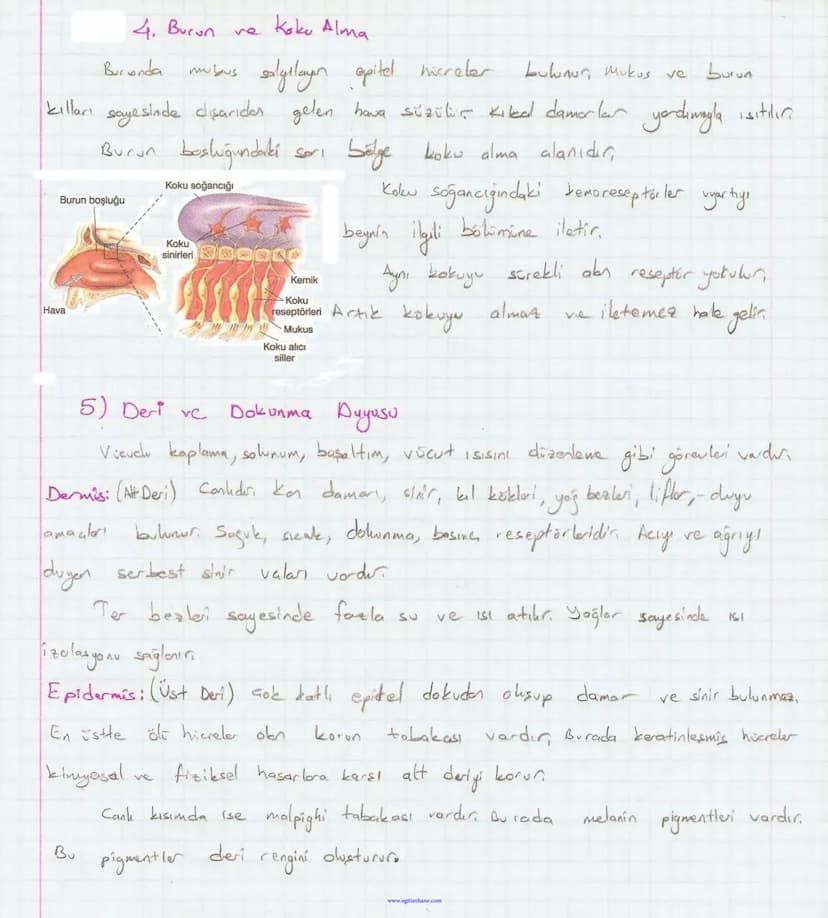 4. Burun ve Koku Alma
Burunda mukus salgılayan epitel hücreler bulunur, Mukus ve burun
kılları sayesinde dışarıdan gelen hava süzülür. Kılcal damarlar yardımıyla ısıtılır.
Burun boşluğundaki sarı bölge koku alma alanıdır,
Koku soğancığı
Burun boşluğu
Koku
sinirleri
Kemik
Koku
reseptörleri
Hava
Mukus
Koku alıcı
siller
Koku soğancığındaki kemoreseptörler uyartıyı
beynin ilgili bölümüne iletir.
Aynı kokuyu sürekli alan reseptör yorulur,
Artık kokuyu almaz ve iletemez hale gelir.
5) Deri ve Dokunma Duyusu
Vücudu kaplama, solunum, boşaltım, vücut ısısını düzenleme gibi görevleri vardır.
Dermis: (Alt Deri) Canlıdır. Kan damarı, sinir, kıl kökleri, yağ bezleri, lifler,- duyu
amaçları bulunur. Soğuk, sıcak, dokunma, basınç reseptörleridir. Acıyı ve ağrıyı
duyan serbest sinir vardır.
Ter bezleri sayesinde fazla su ve ısı atılır. Yağlar sayesinde ısı
izolasyonu sağlanır.
Epidermis: (Üst Deri) Çok katlı epitel dokudan oluşup damar ve sinir bulunmaz.
En üstte ölü hücreler olan korun tabakası vardır, Burada keratinleşmiş hücreler
kimyasal ve fiziksel hasarlara karşı alt deriyi korur.
Canlı kısımda ise malpighi tabakası vardır. Burada melanin pigmentleri vardır.
Bu pigmentler deri rengini oluşturur.
www.egitimhane.com